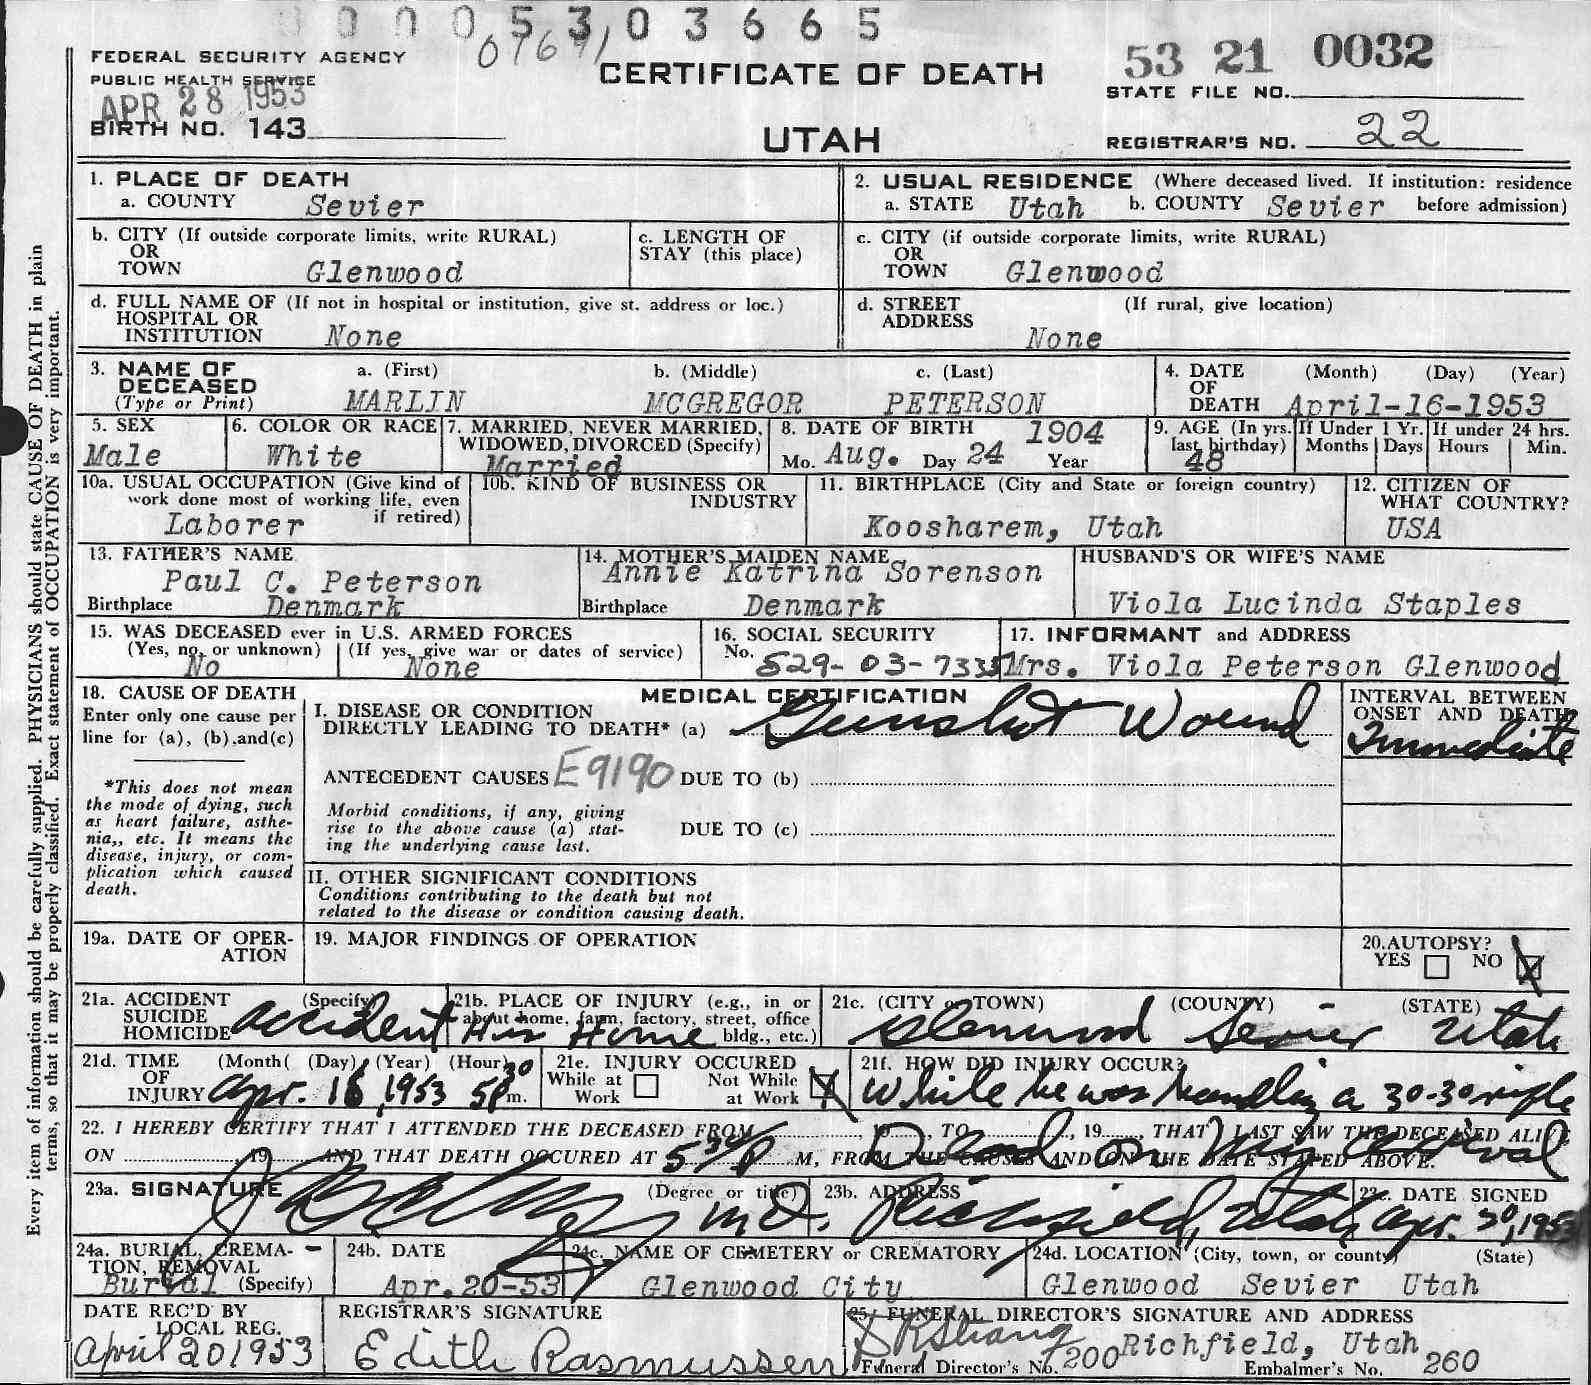 0 0 0 0 5 3 0 3 6 6 5
FEDERAL SECURITY AGENCY
PUBLIC HEALTH SERVICE
APR 28 1953
BIRTH NO. 143
CERTIFICATE OF DEATH
UTAH
53 21 0032
STATE FILE NO.
REGISTRAR'S NO. 22
Every item of information should be carefully supplied. PHYSICIANS should state CAUSE OF DEATH in plain
terms, so that it may be properly classified. Exact statement of OCCUPATION is very important.
1. PLACE OF DEATH
a. COUNTY Sevier
2. USUAL RESIDENCE (Where deceased lived. If institution: residence
a. STATE Utah b. COUNTY Sevier before admission)
b. CITY (If outside corporate limits, write RURAL)
OR
TOWN Glenwood
c. LENGTH OF
STAY (this place)
c. CITY (if outside corporate limits, write RURAL)
OR
TOWN Glenwood
d. FULL NAME OF (If not in hospital or institution, give st. address or loc.)
HOSPITAL OR
INSTITUTION None
d. STREET (If rural, give location)
ADDRESS
None
3. NAME OF DECEASED (Type or Print)
a. (First) b. (Middle) c. (Last)
MARLIN MCGREGOR PETERSON
4. DATE OF DEATH (Month) (Day) (Year)
April-16-1953
5. SEX
Male
6. COLOR OR RACE
White
7. MARRIED, NEVER MARRIED,
WIDOWED, DIVORCED (Specify)
Married
8. DATE OF BIRTH 1904
Mo. Aug. Day 24 Year
9. AGE (In yrs. last birthday)
48
If Under 1 Yr.
Months Days
If under 24 hrs.
Hours Min.
10a. USUAL OCCUPATION (Give kind of
work done most of working life, even
if retired)
Laborer
10b. KIND OF BUSINESS OR
INDUSTRY
11. BIRTHPLACE (City and State or foreign country)
Koosharem, Utah
12. CITIZEN OF
WHAT COUNTRY?
USA
13. FATHER'S NAME
Paul C. Peterson
Birthplace Denmark
14. MOTHER'S MAIDEN NAME
Annie Katrina Sorenson
Birthplace Denmark
HUSBAND'S OR WIFE'S NAME
Viola Lucinda Staples
15. WAS DECEASED ever in U.S. ARMED FORCES
(Yes, no, or unknown) (If yes, give war or dates of service)
No None
16. SOCIAL SECURITY
No. 529-03-7335
17. INFORMANT and ADDRESS
Mrs. Viola Peterson Glenwood
18. CAUSE OF DEATH
Enter only one cause per
line for (a), (b), and (c)
*This does not mean
the mode of dying, such
as heart failure, asthe-
nia,, etc. It means the
disease, injury, or com-
plication which caused
death.
MEDICAL CERTIFICATION
I. DISEASE OR CONDITION
DIRECTLY LEADING TO DEATH* (a) Gunshot Wound
ANTECEDENT CAUSES E9190 DUE TO (b)
Morbid conditions, if any, giving
rise to the above cause (a) stat-
ing the underlying cause last.
DUE TO (c)
II. OTHER SIGNIFICANT CONDITIONS
Conditions contributing to the death but not
related to the disease or condition causing death.
INTERVAL BETWEEN
ONSET AND DEATH
Immediate
19a. DATE OF OPER-
ATION
19. MAJOR FINDINGS OF OPERATION
20. AUTOPSY?
YES NO
21a. ACCIDENT (Specify)
SUICIDE
HOMICIDE accident
21b. PLACE OF INJURY (e.g., in or
about home, farm, factory, street, office
bldg., etc.)
His Home
21c. (CITY or TOWN) (COUNTY) (STATE)
Glenwood Sevier Utah
21d. TIME OF INJURY (Month) (Day) (Year) (Hour)
Apr. 16, 1953 5:30 P m.
21e. INJURY OCCURED
While at Work Not While at Work
21f. HOW DID INJURY OCCUR?
While he was handling a 30-30 rifle
22. I HEREBY CERTIFY THAT I ATTENDED THE DECEASED FROM , 19 , TO , 19 , THAT I LAST SAW THE DECEASED ALIVE
ON , 19 AND THAT DEATH OCCURED AT 5 30 P M, FROM THE CAUSES AND ON THE DATE STATED ABOVE.
Dead on My arrival
23a. SIGNATURE (Degree or title)
M.D.
23b. ADDRESS
Richfield, Utah
23c. DATE SIGNED
Apr. 20, 1953
24a. BURIAL, CREMA-
TION, REMOVAL
Burial (Specify)
24b. DATE
Apr. 20-53
24c. NAME OF CEMETERY or CREMATORY
Glenwood City
24d. LOCATION (City, town, or county) (State)
Glenwood Sevier Utah
DATE REC'D BY
LOCAL REG.
April 20 1953
REGISTRAR'S SIGNATURE
Edith Rasmussen
25. FUNERAL DIRECTOR'S SIGNATURE AND ADDRESS
Richfield, Utah
Funeral Director's No. 200 Embalmer's No. 260